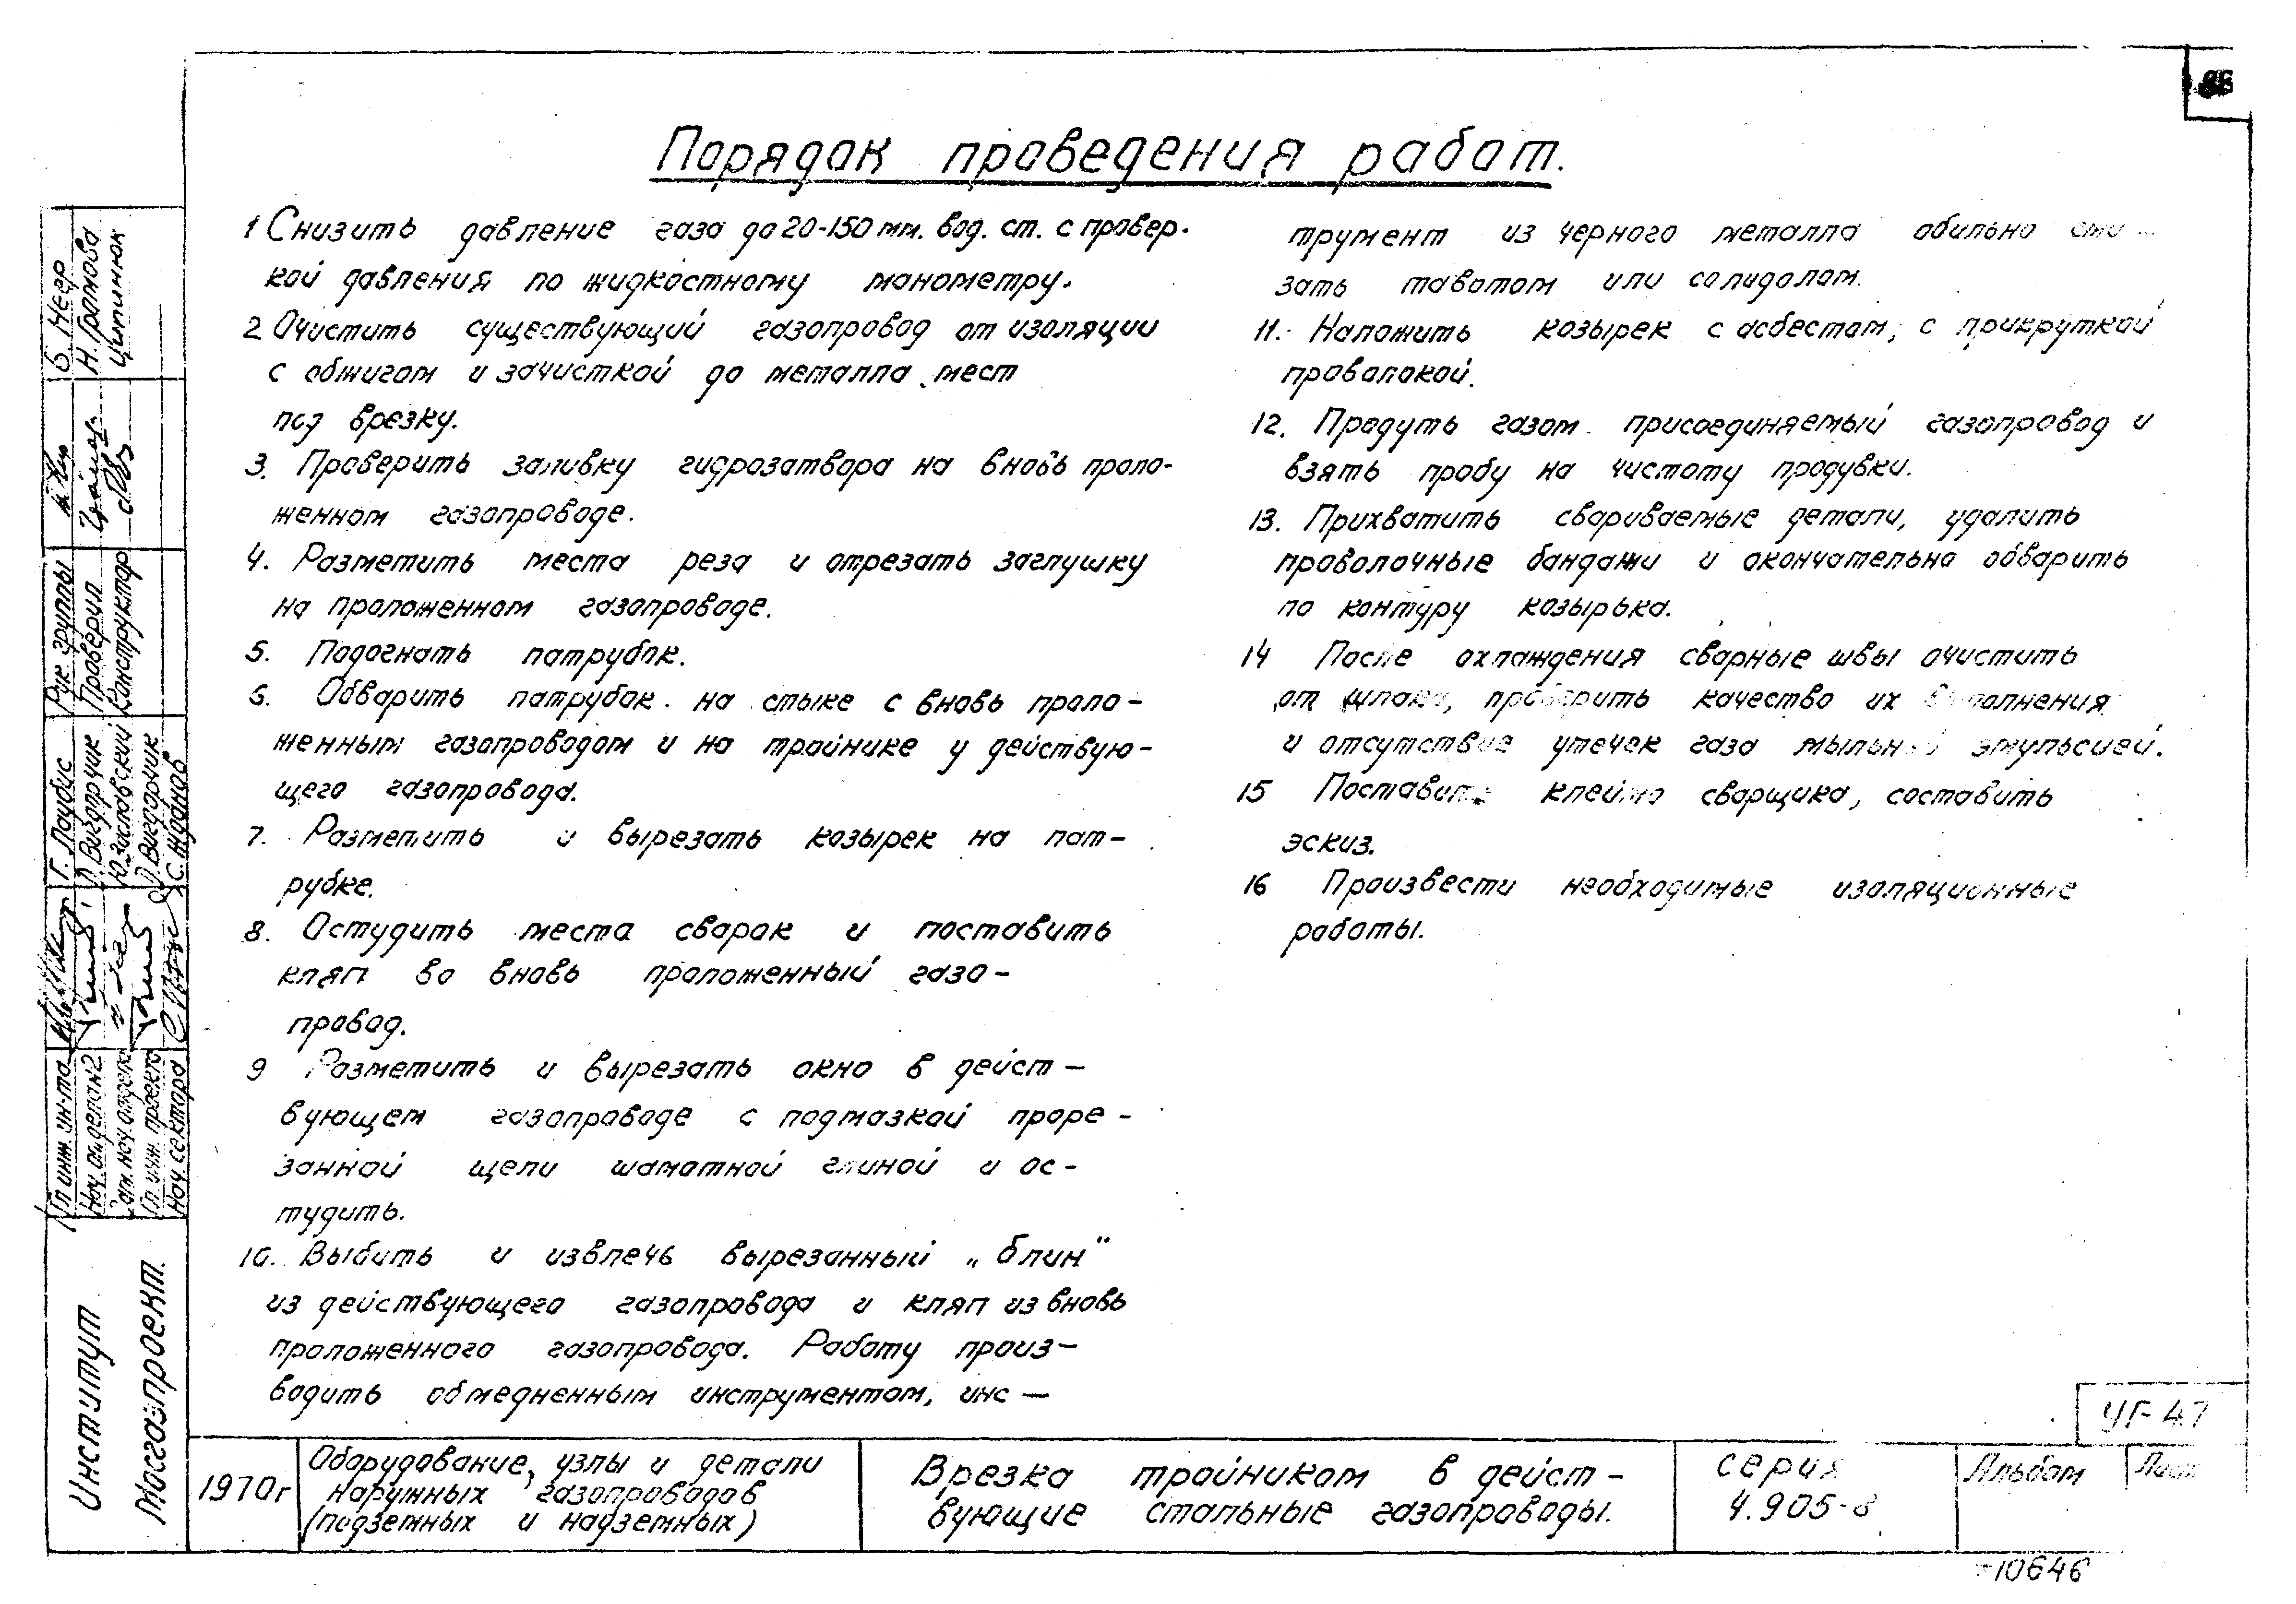 Порядок проведения работ.
1 Снизить давление газа до 20-150 мм. вод. ст. с провер-
кой давления по жидкостному манометру.
2 Очистить существующий газопровод от изоляции
с обжигом и зачисткой до металла мест
под врезку.
3. Проверить заливку гидрозатвора на вновь проло-
женном газопроводе.
4. Разметить места реза и отрезать заглушку
на проложенном газопроводе.
5. Подогнать патрубок.
6. Обварить патрубок на стыке с вновь проло-
женным газопроводом и на тройнике у действую-
щего газопровода.
7. Разметить и вырезать козырек на пат-
рубке.
8. Остудить места сварок и поставить
кляп во вновь проложенный газо-
провод.
9 Разметить и вырезать окно в дейст-
вующем газопроводе с подмазкой проре-
занной щели шамотной глиной и ос-
тудить.
10. Выбить и извлечь вырезанный „блин"
из действующего газопровода и кляп из вновь
проложенного газопровода. Работу произ-
водить обмедненным инструментом, инс-
трумент из черного металла обильно
зать тавотом или солидолом.
11. Наложить козырек с асбестом, с прикруткой
проволокой.
12. Продуть газом присоединяемый газопровод и
взять пробу на чистоту продувки.
13. Прихватить свариваемые детали, удалить
проволочные бандажи и окончательно обварить
по контуру козырька.
14 После охлаждения сварные швы очистить
от шлака, проверить качество их выполнения
и отсутствие утечек газа мыльной эмульсией.
15 Поставить клеймо сварщика, составить
эскиз.
16 Произвести необходимые изоляционные
работы.
УГ-47
1970г
Оборудование, узлы и детали
наружных газопроводов
(подземных и надземных)
Врезка тройником в дейст-
вующие стальные газопроводы.
серия
4.905-8
Альбом
Лист
10646
Институт
Мосгазпроект.
Гл. инж. ин-та
Г. Лаубис
Рук. группы
Б. Неер
Проверил
Н. Громова
Конструктор
Ципинюк
Ю. Заславский
Гл. инж. проекта
Нач. сектора
С. Жданов